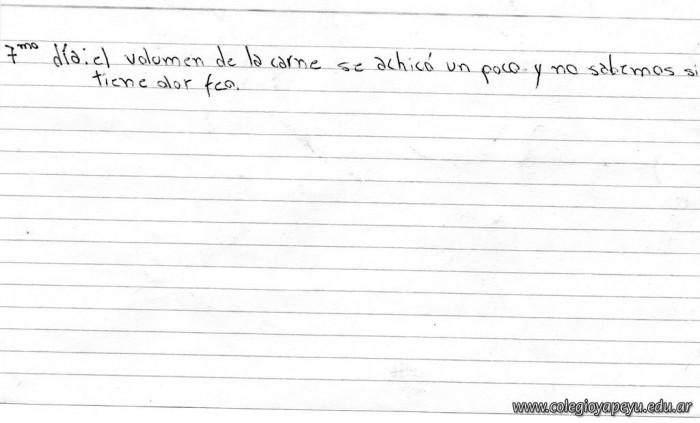 7mo día: el volumen de la carne se achicó un poco y no sabemos si
tiene olor feo.
www.colegioyapeyu.edu.ar